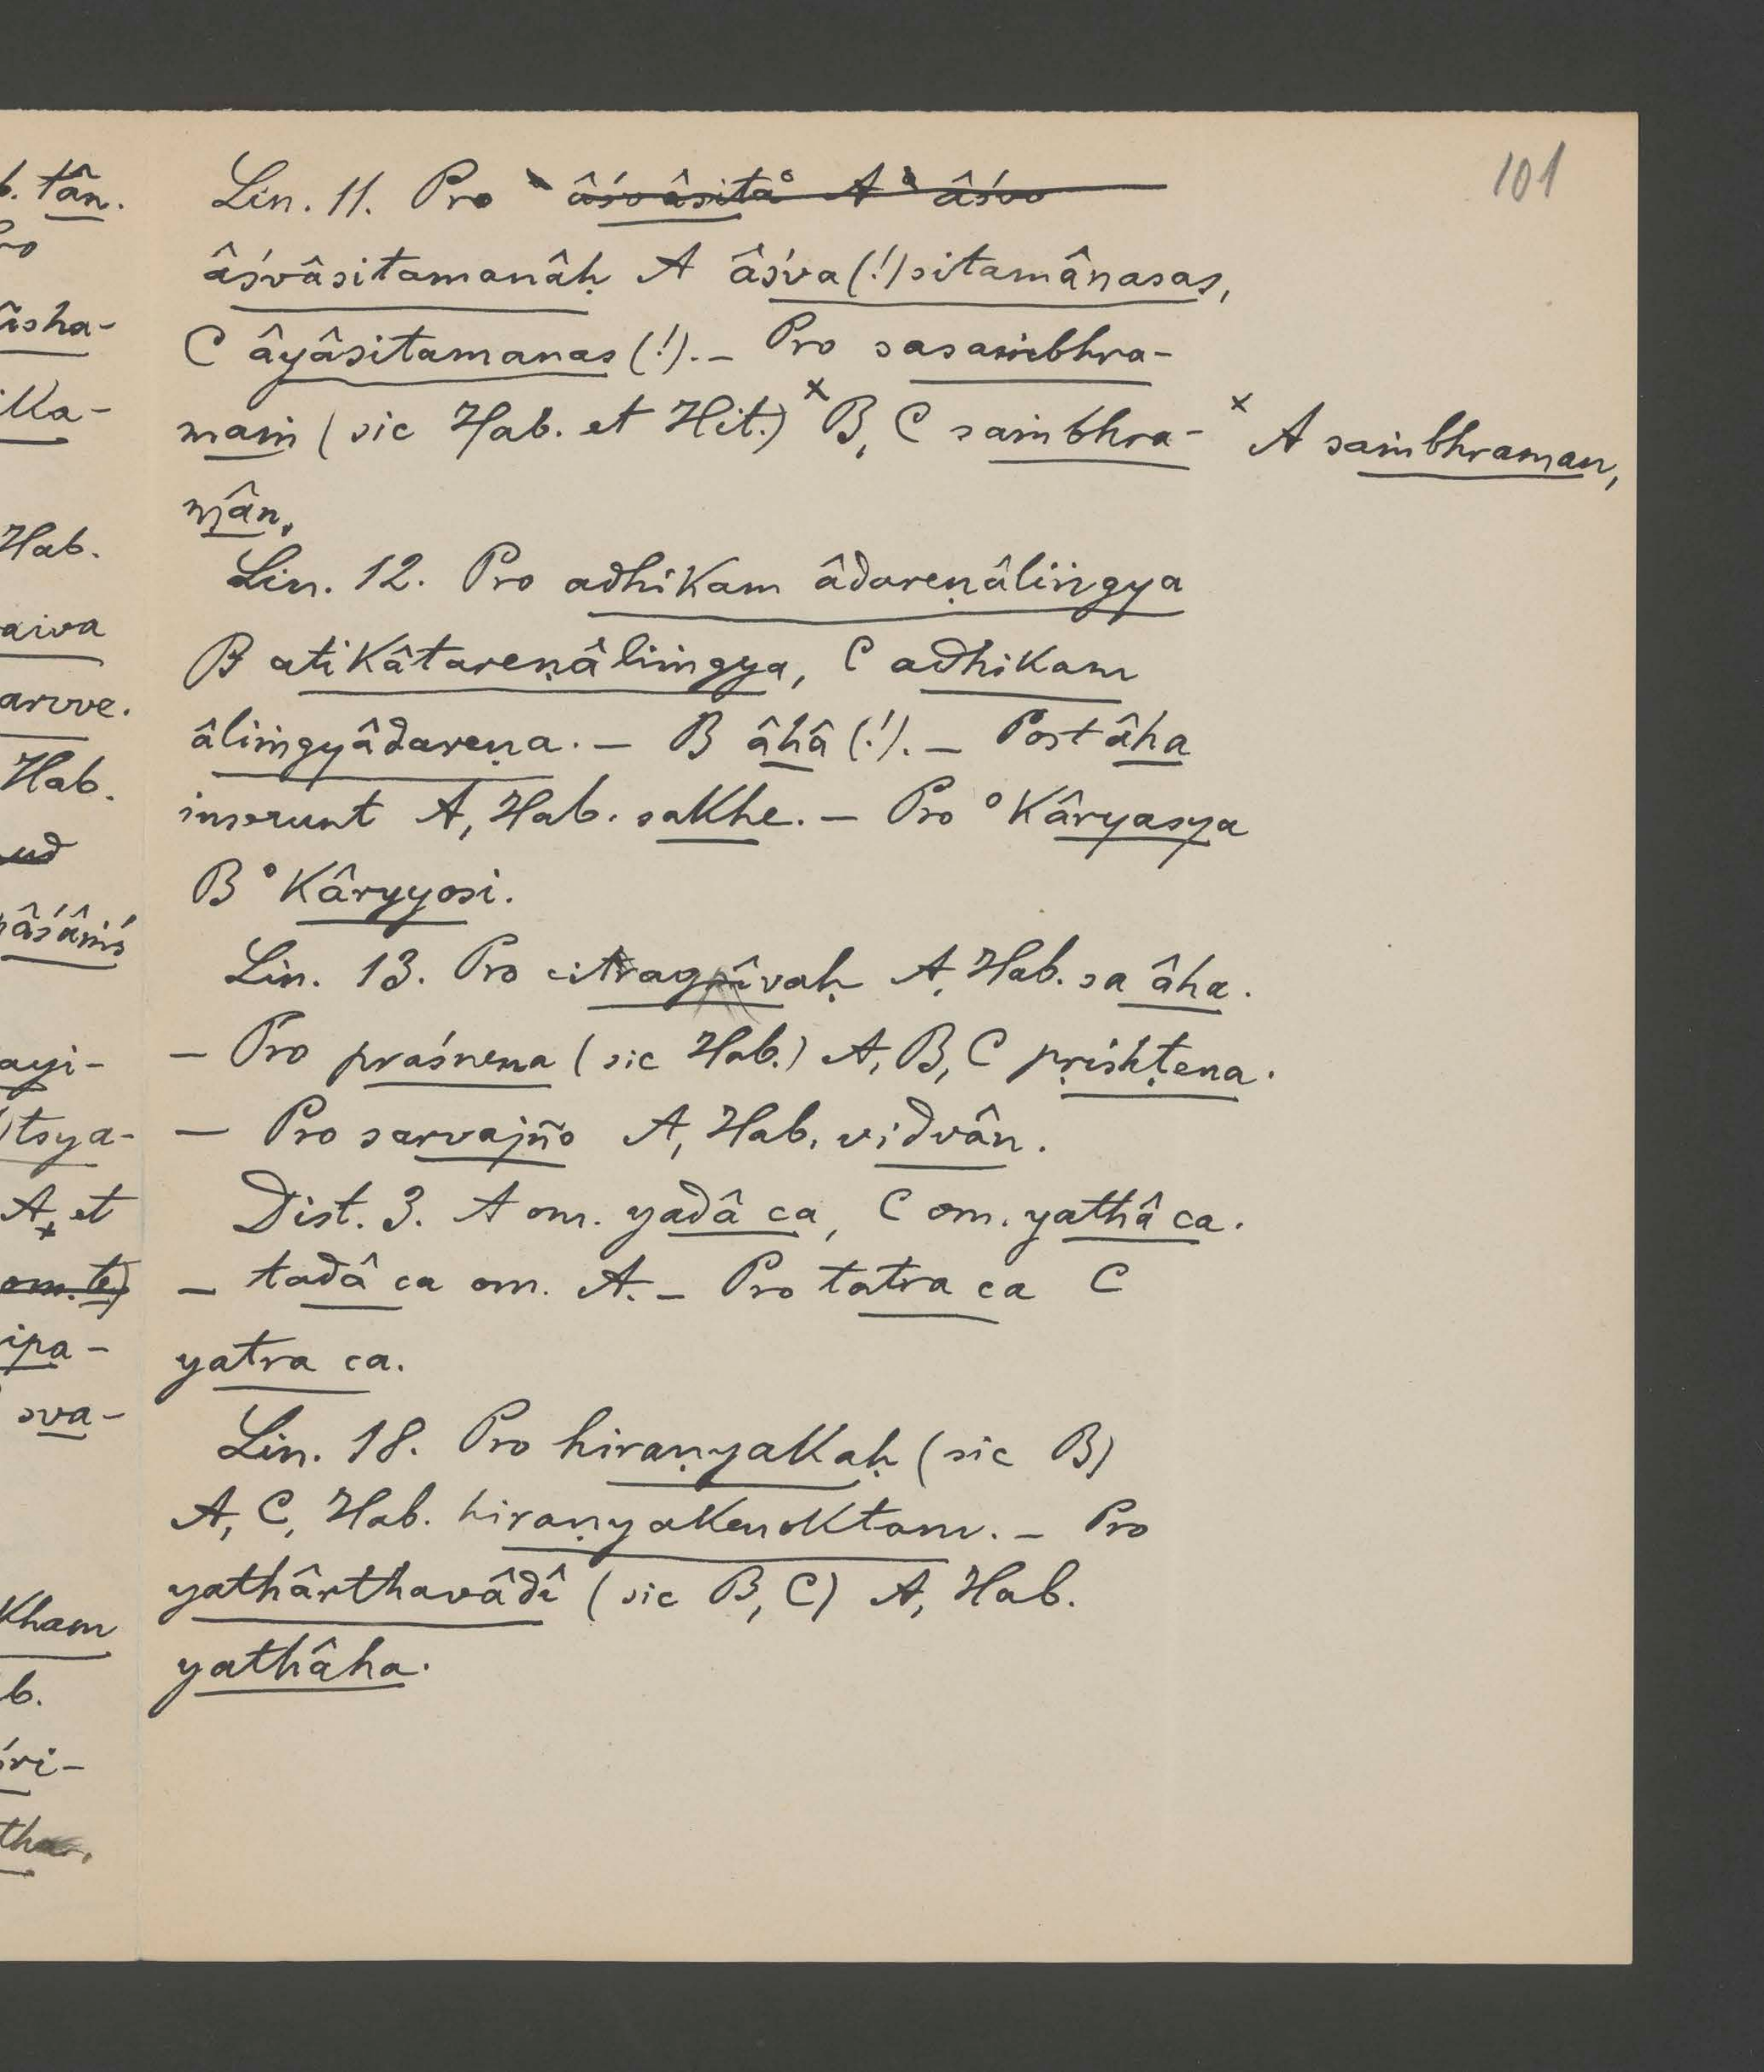 101
Lin. 11. Pro ~~°âśvâsita° A °âśvo~~
âśvâsitamanâḥ A âśva(!)sitamânasas,
C âyâsitamanas (!). – Pro sasaṁbhra-
maṁ (sic Hab. et Hit.) × B, C saṁbhra- × A saṁbhraman,
mân.
Lin. 12. Pro adhikam âdareṇâliṅgya
B atikâtareṇâliṁgya, C adhikam
âliṁgyâdareṇa. – B âhâ (!). – Post âha
inserunt A, Hab. sakhe. – Pro °kâryasya
B °kâryyosi.
Lin. 13. Pro citragrîvaḥ A, Hab. sa âha.
– Pro praśnena (sic Hab.) A, B, C pṛishṭena.
– Pro sarvajño A, Hab. vidvân.
Dist. 3. A om. yadâ ca, C om. yathâ ca.
– tadâ ca om. A. – Pro tatra ca C
yatra ca.
Lin. 18. Pro hiraṇyakaḥ (sic B)
A, C, Hab. hiraṇyakenoktam. – Pro
yathârthavâdî (sic B, C) A, Hab.
yathâha.
b. tân.
âsha-
ka-
Hab.
aiva
arvve.
Hab.
~~ud~~
âśâṁś
ayi-
tsya-
A × et
~~om. te)~~
ipa-
sva-
kham
b.
śri-
tha.